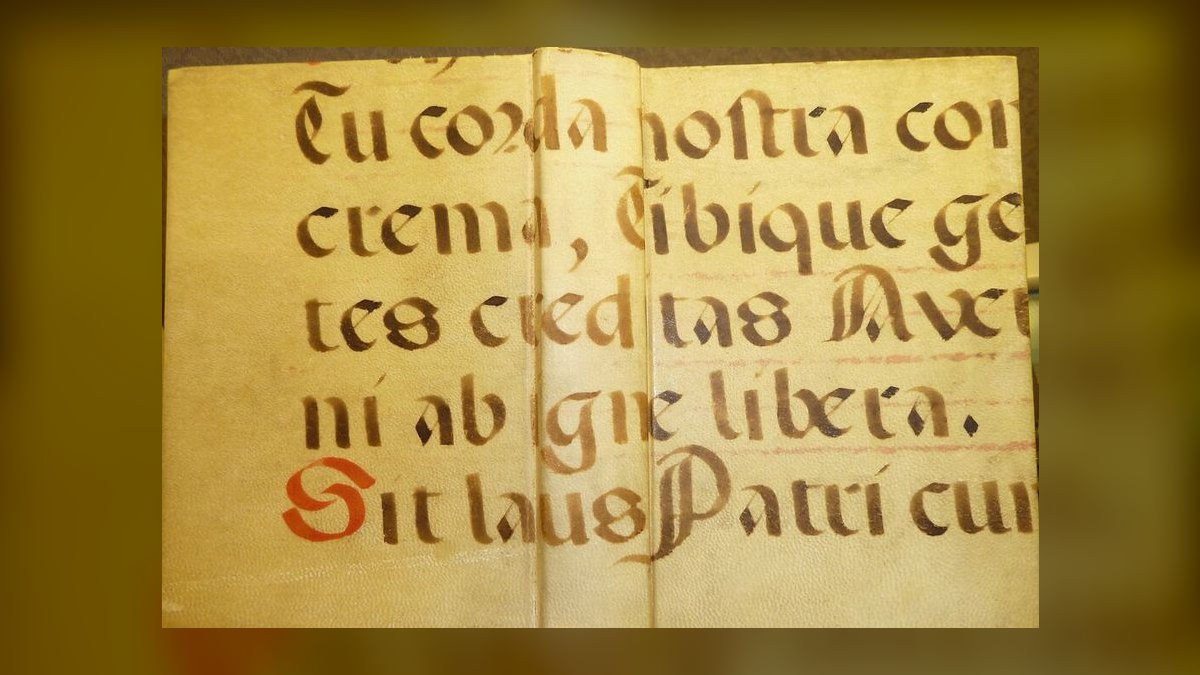 Tu corda nostra con
crema, Tibique ge
tes creditas Aver
ni ab igne libera.
Sit laus Patri cum